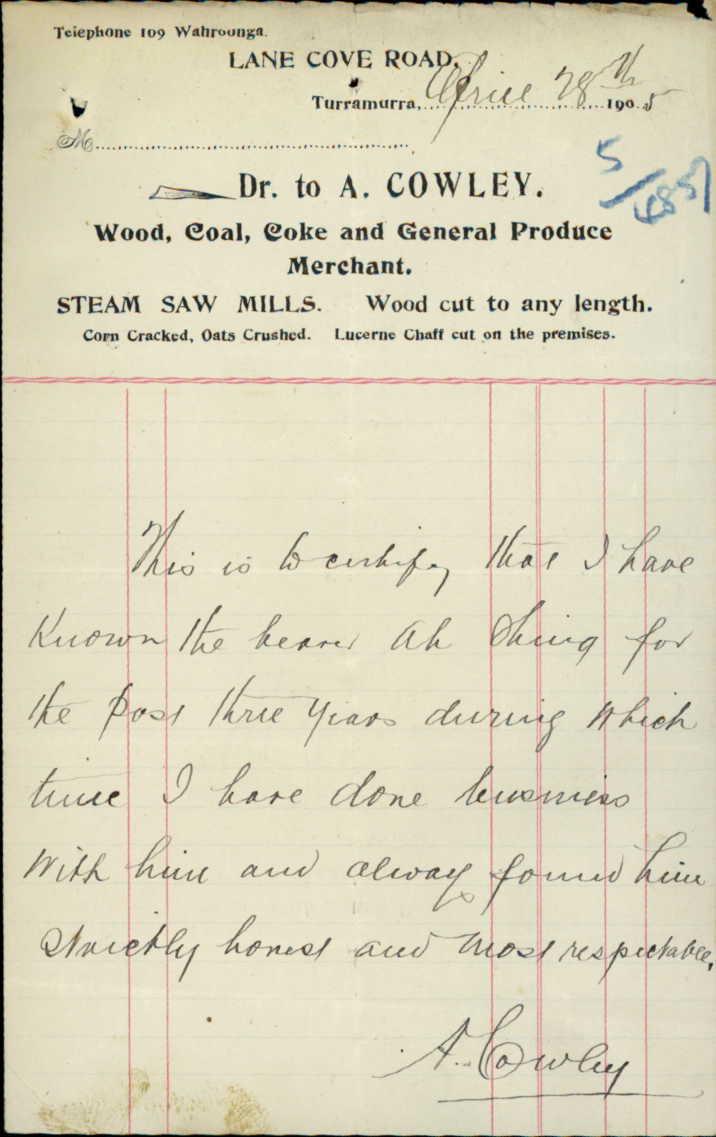 Telephone 109 Wahroonga.
LANE COVE ROAD,
Turramurra, April 28th 1905
M
5/4857
Dr. to A. COWLEY.
Wood, Coal, Coke and General Produce
Merchant.
STEAM SAW MILLS. Wood cut to any length.
Corn Cracked, Oats Crushed. Lucerne Chaff cut on the premises.
This is to certify that I have
Known the bearer Ah Shing for
the past three years during which
time I have done business
with him and always found him
strictly honest and most respectable.
A. Cowley